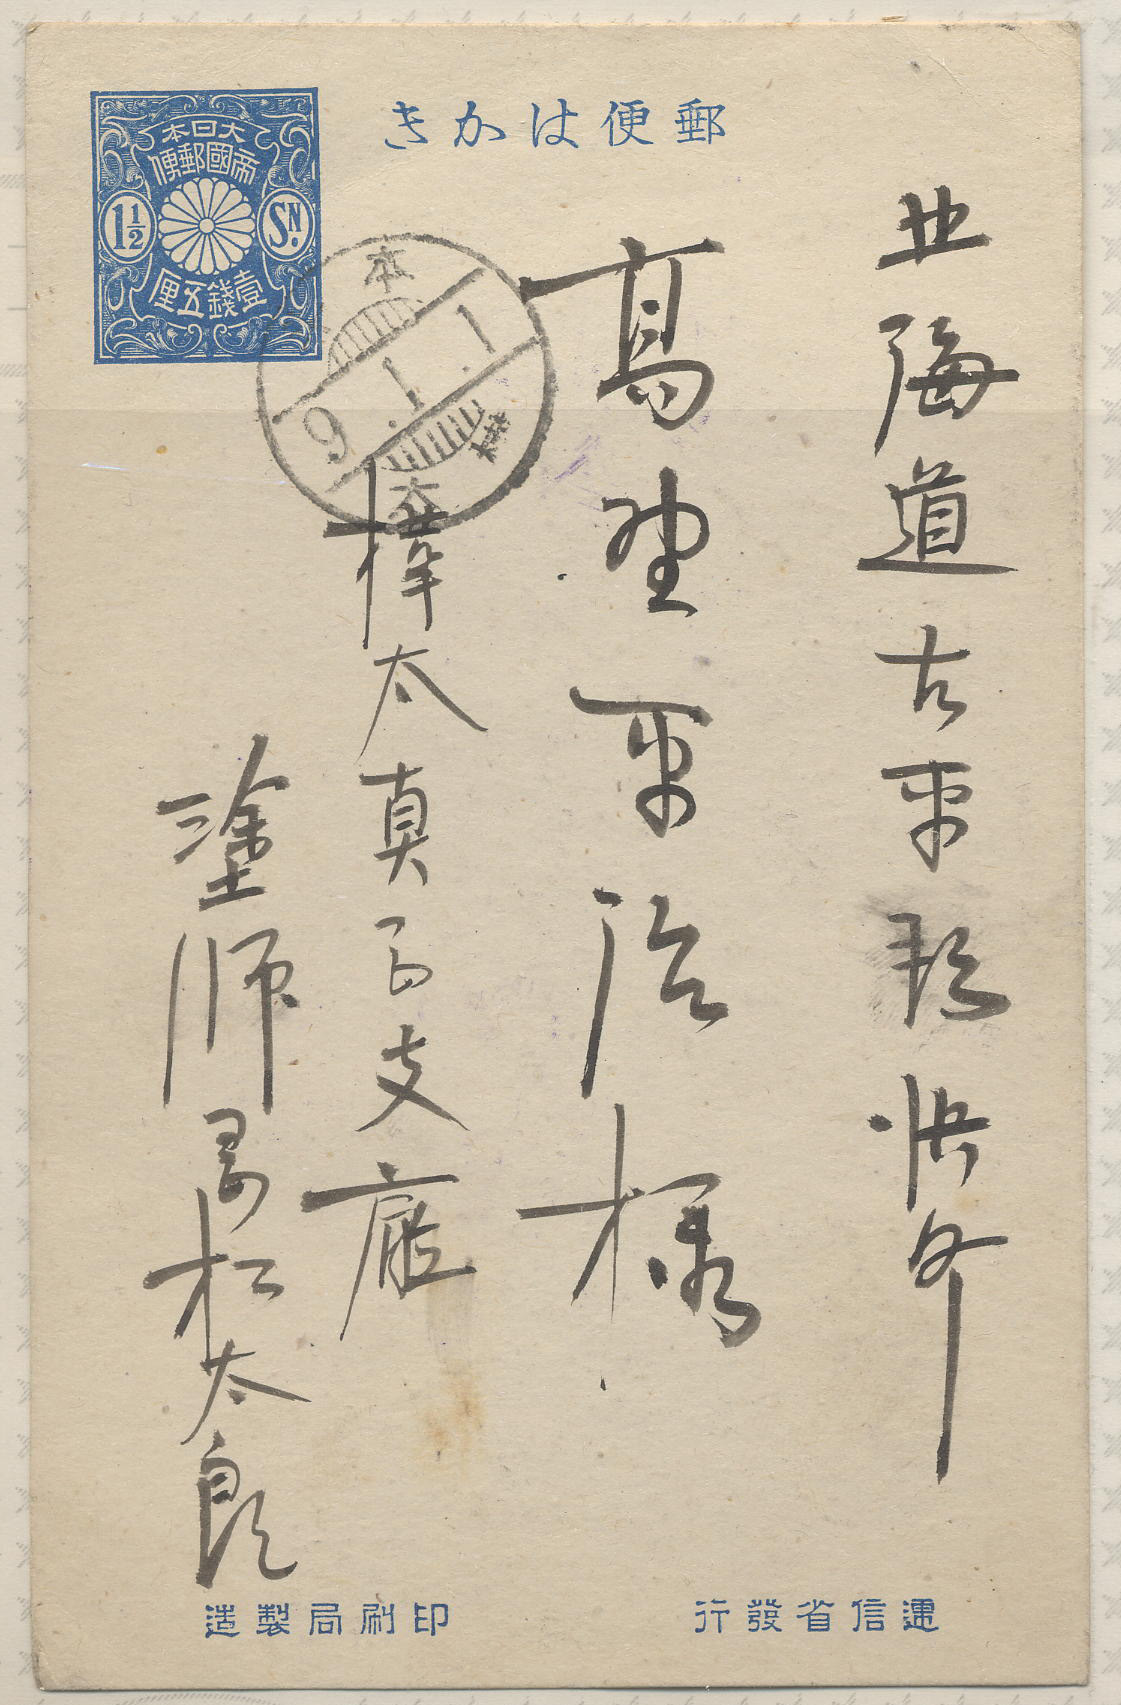 郵便はかき
大日本
帝國郵便
1½
SN.
壹錢五厘
本
9.1.1
樺太
北海道古平郡
高野平治様
樺太真岡支庁
塗師
松太郎
遞信省發行
印刷局製造